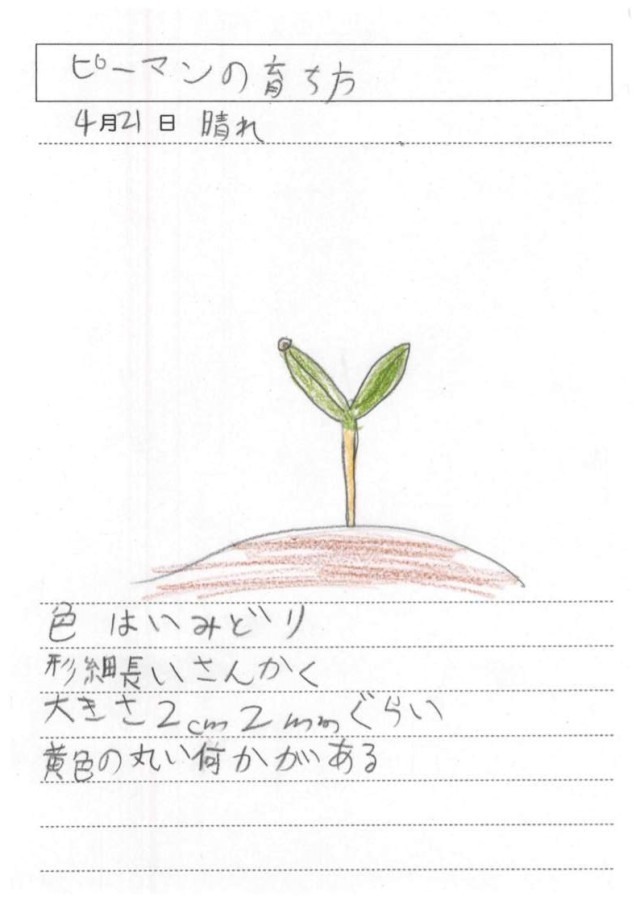 ピーマンの育ち方
4月21日 晴れ
色 はいみどり
形細長いさんかく
大きさ2cm2mmぐらい
黄色の丸い何かがある